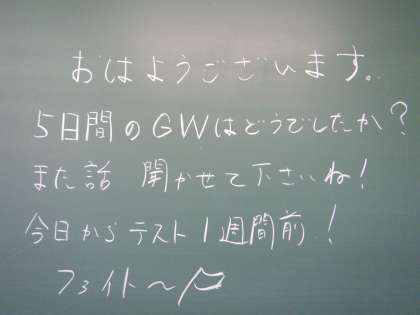 おはようございます。
5日間のGWはどうでしたか?
また話 開かせて下さいね!
今日からテスト1週間前!
ファイト〜